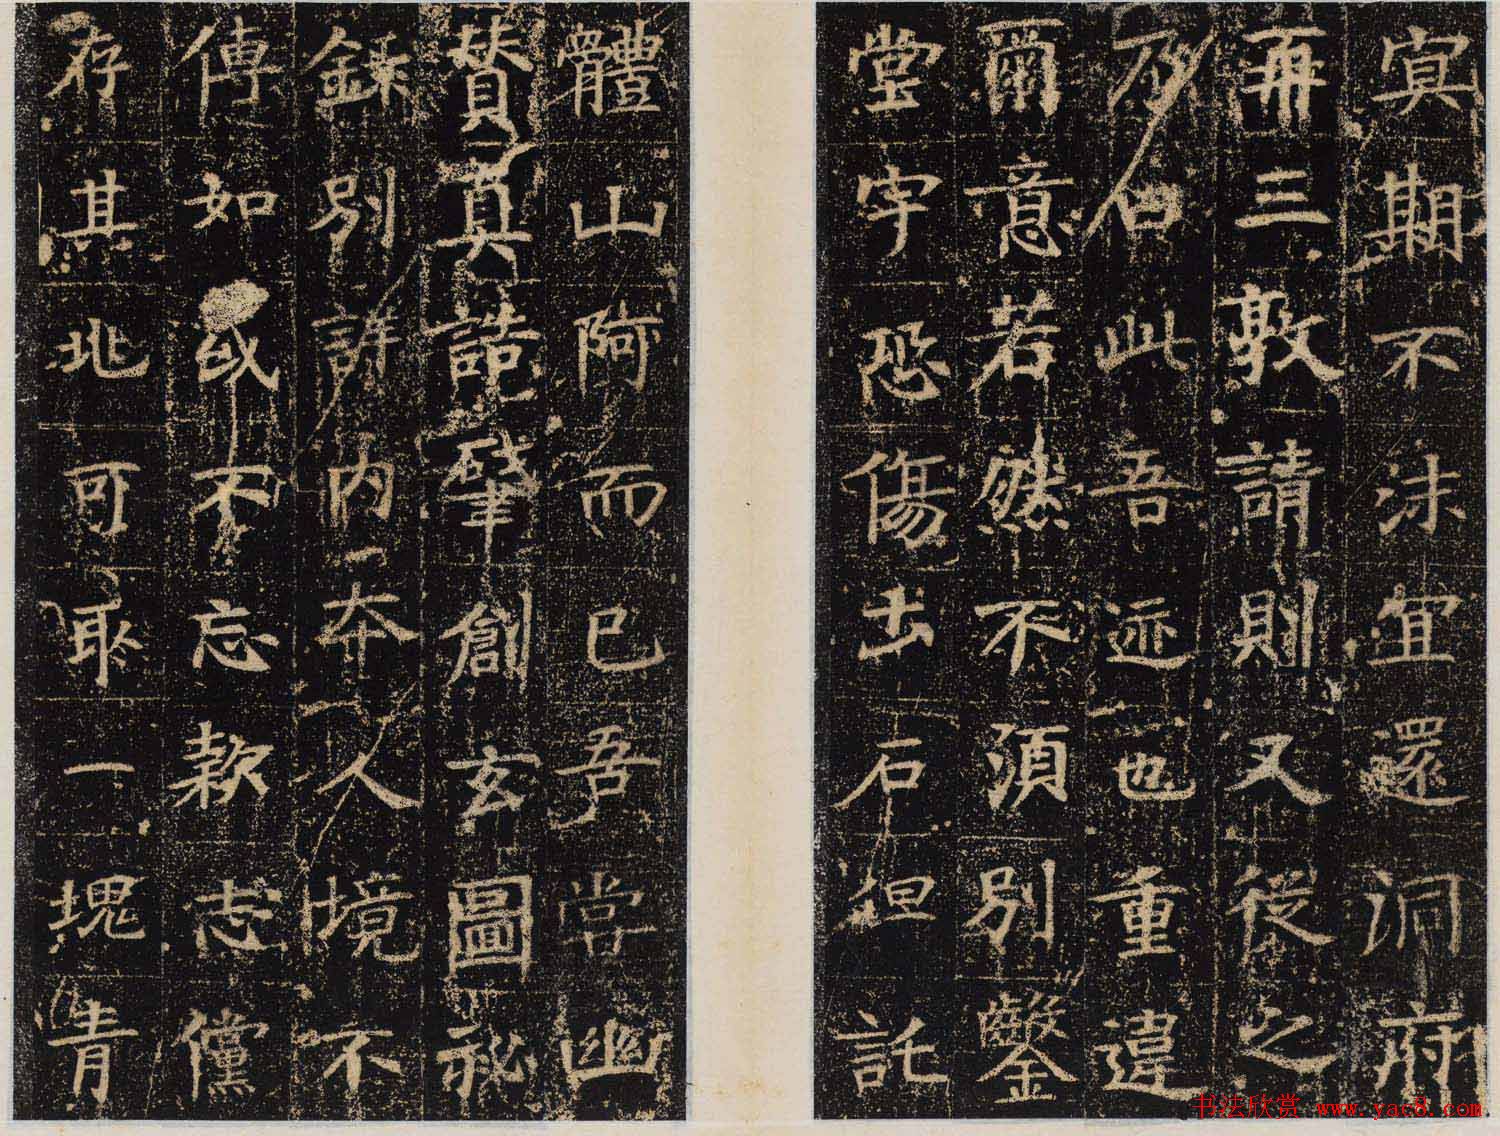 寘期不沬宜還洞府
再三敦請則又從之
乃曰此吾迹也重違
爾意若然不須別鑿
堂宇恐傷土石但託
體山阿而已吾嘗幽
賛真誥肇創玄圖祕
錄別許內夲人境不
傳如或不忘款志儻
存其兆可取一塊青
书法欣赏 www.yac8.com